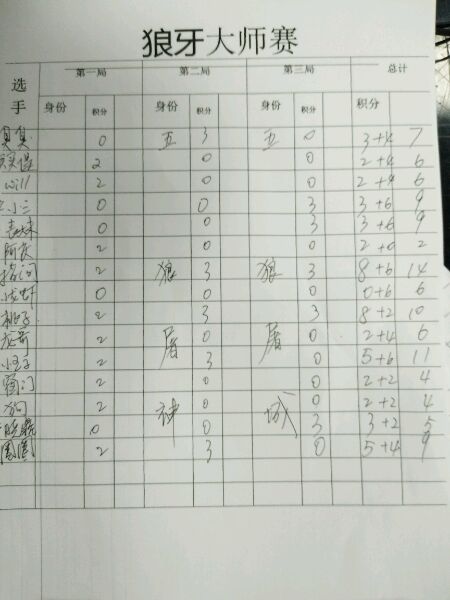 狼牙大师赛
选手 第一局 第二局 第三局 总计
身份 积分 身份 积分 身份 积分 积分
0 五 3 五 0 3+4 7
2 0 0 2+4 6
will 2 0 0 2+4 6
小三 0 0 3 3+6 9
0 0 3 3+6 9
2 0 0 2+0 2
2 狼 3 狼 3 8+6 14
0 0 0 0+6 6
桃子 2 3 3 8+2 10
2 屠 0 屠 0 2+4 6
2 3 0 5+6 11
2 0 0 2+2 4
2 神 0 城 0 2+2 4
0 0 3 3+2 5
圈圈 2 3 0 5+4 9